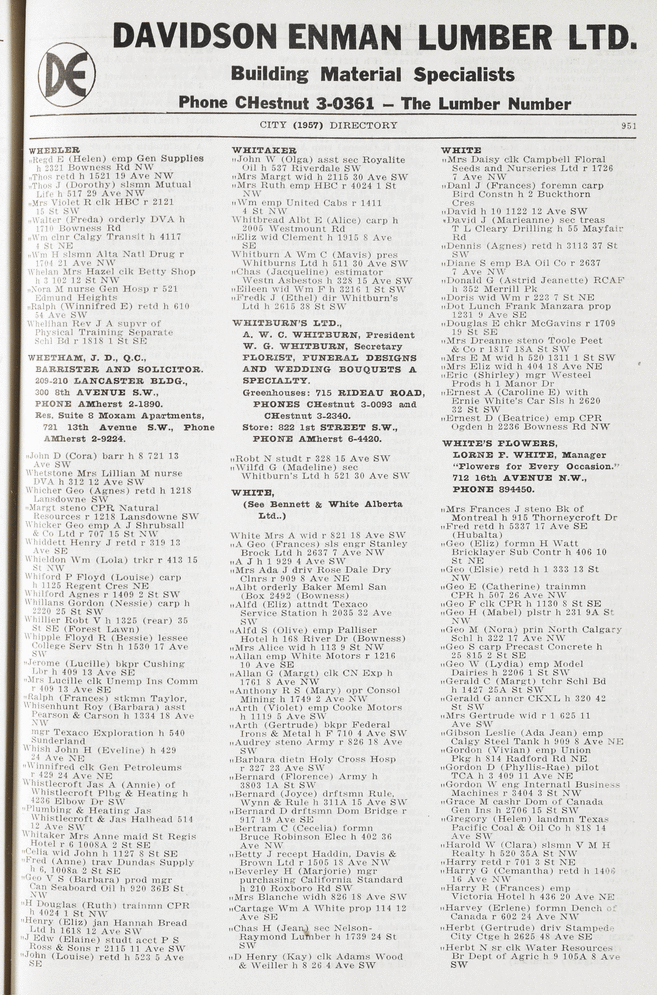 DAVIDSON ENMAN LUMBER LTD.
DE
Building Material Specialists
Phone CHestnut 3-0361 — The Lumber Number
CITY (1957) DIRECTORY
951
WHEELER
„Regd E (Helen) emp Gen Supplies
h 2321 Bowness Rd NW
„Thos retd h 1521 19 Ave NW
„Thos J (Dorothy) slsmn Mutual
Life h 517 29 Ave NW
„Mrs Violet R clk HBC r 2121
15 St SW
„Walter (Freda) orderly DVA h
1710 Bowness Rd
„Wm clnr Calgy Transit h 4117
4 St NE
„Wm H slsmn Alta Natl Drug r
1704 21 Ave NW
Whelan Mrs Hazel clk Betty Shop
h 3 102 12 St NW
„Nora M nurse Gen Hosp r 521
Edmund Heights
„Ralph (Winnifred E) retd h 610
54 Ave SW
Whelihan Rev J A supvr of
Physical Training Separate
Schl Bd r 1818 1 St SE
WHETHAM, J. D., Q.C.,
BARRISTER AND SOLICITOR.
209-210 LANCASTER BLDG.,
300 8th AVENUE S.W.,
PHONE AMherst 2-1890.
Res. Suite 8 Moxam Apartments,
721 13th Avenue S.W., Phone
AMherst 2-9224.
„John D (Cora) barr h 8 721 13
Ave SW
Whetstone Mrs Lillian M nurse
DVA h 312 12 Ave SW
Whicher Geo (Agnes) retd h 1218
Lansdowne SW
„Margt steno CPR Natural
Resources r 1218 Lansdowne SW
Whicker Geo emp A J Shrubsall
& Co Ltd r 707 15 St NW
Whiddett Henry J retd r 319 13
Ave SE
Whieldon Wm (Lola) trkr r 413 15
St NW
Whiford P Floyd (Louise) carp
h 1125 Regent Cres NE
Whilford Agnes r 1409 2 St SW
Whillans Gordon (Nessie) carp h
2220 25 St SW
Whillier Robt V h 1325 (rear) 35
St SE (Forest Lawn)
Whipple Floyd R (Bessie) lessee
College Serv Stn h 1530 17 Ave
SW
„Jerome (Lucille) bkpr Cushing
Lbr h 409 13 Ave SE
„Mrs Lucille clk Unemp Ins Comm
r 409 13 Ave SE
„Ralph (Frances) stkmn Taylor,
Whisenhunt Roy (Barbara) asst
Pearson & Carson h 1334 18 Ave
NW
mgr Texaco Exploration h 540
Sunderland
Whish John H (Eveline) h 429
24 Ave NE
„Winnifred clk Gen Petroleums
r 429 24 Ave NE
Whistlecroft Jas A (Annie) of
Whistlecroft Plbg & Heating h
4236 Elbow Dr SW
„Plumbing & Heating Jas
Whistlecroft & Jas Halhead 514
12 Ave SW
Whitaker Mrs Anne maid St Regis
Hotel r 6 1008A 2 St SE
„Celia wid John h 1127 8 St SE
„Fred (Anne) trav Dundas Supply
h 6, 1008a 2 St SE
„Geo V S (Barbara) prod mgr
Can Seaboard Oil h 920 36B St
NW
„H Douglas (Ruth) trainmn CPR
h 4024 1 St NW
„Henry (Eliz) jan Hannah Bread
Ltd h 1618 12 Ave SW
„J Edw (Elaine) studt acct P S
Ross & Sons r 2115 11 Ave SW
„John (Louise) retd h 523 5 Ave
SE
WHITAKER
„John W (Olga) asst sec Royalite
Oil h 537 Riverdale SW
„Mrs Margt wid h 2115 30 Ave SW
„Mrs Ruth emp HBC r 4024 1 St
NW
„Wm emp United Cabs r 1411
4 St NW
Whitbread Albt E (Alice) carp h
2005 Westmount Rd
„Eliz wid Clement h 1915 8 Ave
SE
Whitburn A Wm C (Mavis) pres
Whitburns Ltd h 511 30 Ave SW
„Chas (Jacqueline) estimator
Westn Asbestos h 328 15 Ave SW
„Eileen wid Wm F h 3216 1 St SW
„Fredk J (Ethel) dir Whitburn's
Ltd h 2615 38 St SW
WHITBURN'S LTD.,
A. W. C. WHITBURN, President
W. G. WHITBURN, Secretary
FLORIST, FUNERAL DESIGNS
AND WEDDING BOUQUETS A
SPECIALTY.
Greenhouses: 715 RIDEAU ROAD,
PHONES CHestnut 3-0093 and
CHestnut 3-2340.
Store: 822 1st STREET S.W.,
PHONE AMherst 6-4420.
„Robt N studt r 328 15 Ave SW
„Wilfd G (Madeline) sec
Whitburn's Ltd h 521 30 Ave SW
WHITE,
(See Bennett & White Alberta
Ltd..)
White Mrs A wid r 821 18 Ave SW
„A Geo (Frances) sls engr Stanley
Brock Ltd h 2637 7 Ave NW
„A J h 1 929 4 Ave SW
„Mrs Ada J driv Rose Dale Dry
Clnrs r 909 8 Ave NE
„Albt orderly Baker Meml San
(Box 2492 (Bowness)
„Alfd (Eliz) attndt Texaco
Service Station h 2035 32 Ave
SW
„Alfd S (Olive) emp Palliser
Hotel h 168 River Dr (Bowness)
„Mrs Alice wid h 113 9 St NW
„Allan emp White Motors r 1216
10 Ave SE
„Allan G (Margt) clk CN Exp h
1761 8 Ave NW
„Anthony R S (Mary) opr Consol
Mining h 1749 2 Ave NW
„Arth (Violet) emp Cooke Motors
h 1119 5 Ave SW
„Arth (Gertrude) bkpr Federal
Irons & Metal h F 710 4 Ave SW
„Audrey steno Army r 826 18 Ave
SW
„Barbara dietn Holy Cross Hosp
r 327 23 Ave SW
„Bernard (Florence) Army h
3803 1A St SW
„Bernard (Joyce) drftsmn Rule,
Wynn & Rule h 311A 15 Ave SW
„Bernard D drftsmn Dom Bridge r
917 19 Ave SE
„Bertram C (Cecelia) formn
Bruce Robinson Elec h 402 36
Ave NW
„Betty J recept Haddin, Davis &
Brown Ltd r 1505 18 Ave NW
„Beverley H (Marjorie) mgr
purchasing California Standard
h 210 Roxboro Rd SW
„Mrs Blanche widh 826 18 Ave SW
„Cartage Wm A White prop 114 12
Ave SE
„Chas H (Jean) sec Nelson-
Raymond Lumber h 1739 24 St
SW
„D Henry (Kay) clk Adams Wood
& Weiller h 8 26 4 Ave SW
WHITE
„Mrs Daisy clk Campbell Floral
Seeds and Nurseries Ltd r 1726
7 Ave NW
„Danl J (Frances) foremn carp
Bird Constn h 2 Buckthorn
Cres
„David h 10 1122 12 Ave SW
„David J (Marieanne) sec treas
T L Cleary Drilling h 55 Mayfair
Rd
„Dennis (Agnes) retd h 3113 37 St
SW
„Diane S emp BA Oil Co r 2637
7 Ave NW
„Donald G (Astrid Jeanette) RCAF
h 352 Merrill Pk
„Doris wid Wm r 223 7 St NE
„Dot Lunch Frank Manzara prop
1231 9 Ave SE
„Douglas E chkr McGavins r 1709
19 St SE
„Mrs Dreanne steno Toole Peet
& Co r 1817 18A St SW
„Mrs E M wid h 520 1311 1 St SW
„Mrs Eliz wid h 404 18 Ave NE
„Eric (Shirley) mgr Westeel
Prods h 1 Manor Dr
„Ernest A (Caroline E) with
Ernie White's Car Sls h 2620
32 St SW
„Ernest D (Beatrice) emp CPR
Ogden h 2236 Bowness Rd NW
WHITE'S FLOWERS,
LORNE F. WHITE, Manager
“Flowers for Every Occasion.”
712 16th AVENUE N.W.,
PHONE 894450.
„Mrs Frances J steno Bk of
Montreal h 915 Thorneycroft Dr
„Fred retd h 5337 17 Ave SE
(Hubalta)
„Geo (Eliz) formn H Watt
Bricklayer Sub Contr h 406 10
St NE
„Geo (Elsie) retd h 1 333 13 St
NW
„Geo E (Catherine) trainmn
CPR h 507 26 Ave NW
„Geo F clk CPR h 1130 8 St SE
„Geo H (Mabel) plstr h 231 9A St
NW
„Geo M (Nora) prin North Calgary
Schl h 322 17 Ave NW
„Geo S carp Precast Concrete h
25 815 2 St SE
„Geo W (Lydia) emp Model
Dairies h 2206 1 St SW
„Gerald C (Margt) tchr Schl Bd
h 1427 25A St SW
„Gerald G anncr CKXL h 320 42
St SW
„Mrs Gertrude wid r 1 625 11
Ave SW
„Gibson Leslie (Ada Jean) emp
Calgy Steel Tank h 909 8 Ave NE
„Gordon (Vivian) emp Union
Pkg h 814 Radford Rd NE
„Gordon D (Phyllis-Rae) pilot
TCA h 3 409 11 Ave NE
„Gordon W eng Internatl Business
Machines r 3404 3 St NW
„Grace M cashr Dom of Canada
Gen Ins h 2706 15 St SW
„Gregory (Helen) landmn Texas
Pacific Coal & Oil Co h 818 14
Ave SW
„Harold W (Clara) slsmn V M H
Realty h 520 35A St NW
„Harry retd r 701 3 St NE
„Harry G (Cemantha) retd h 1406
16 Ave NW
„Harry R (Frances) emp
Victoria Hotel h 436 20 Ave NE
„Harvey (Erlene) formn Dench of
Canada r 602 24 Ave NW
„Herbt (Gertrude) driv Stampede
City Ctge h 2625 48 Ave SE
„Herbt N sr clk Water Resources
Br Dept of Agric h 9 105A 8 Ave
SW